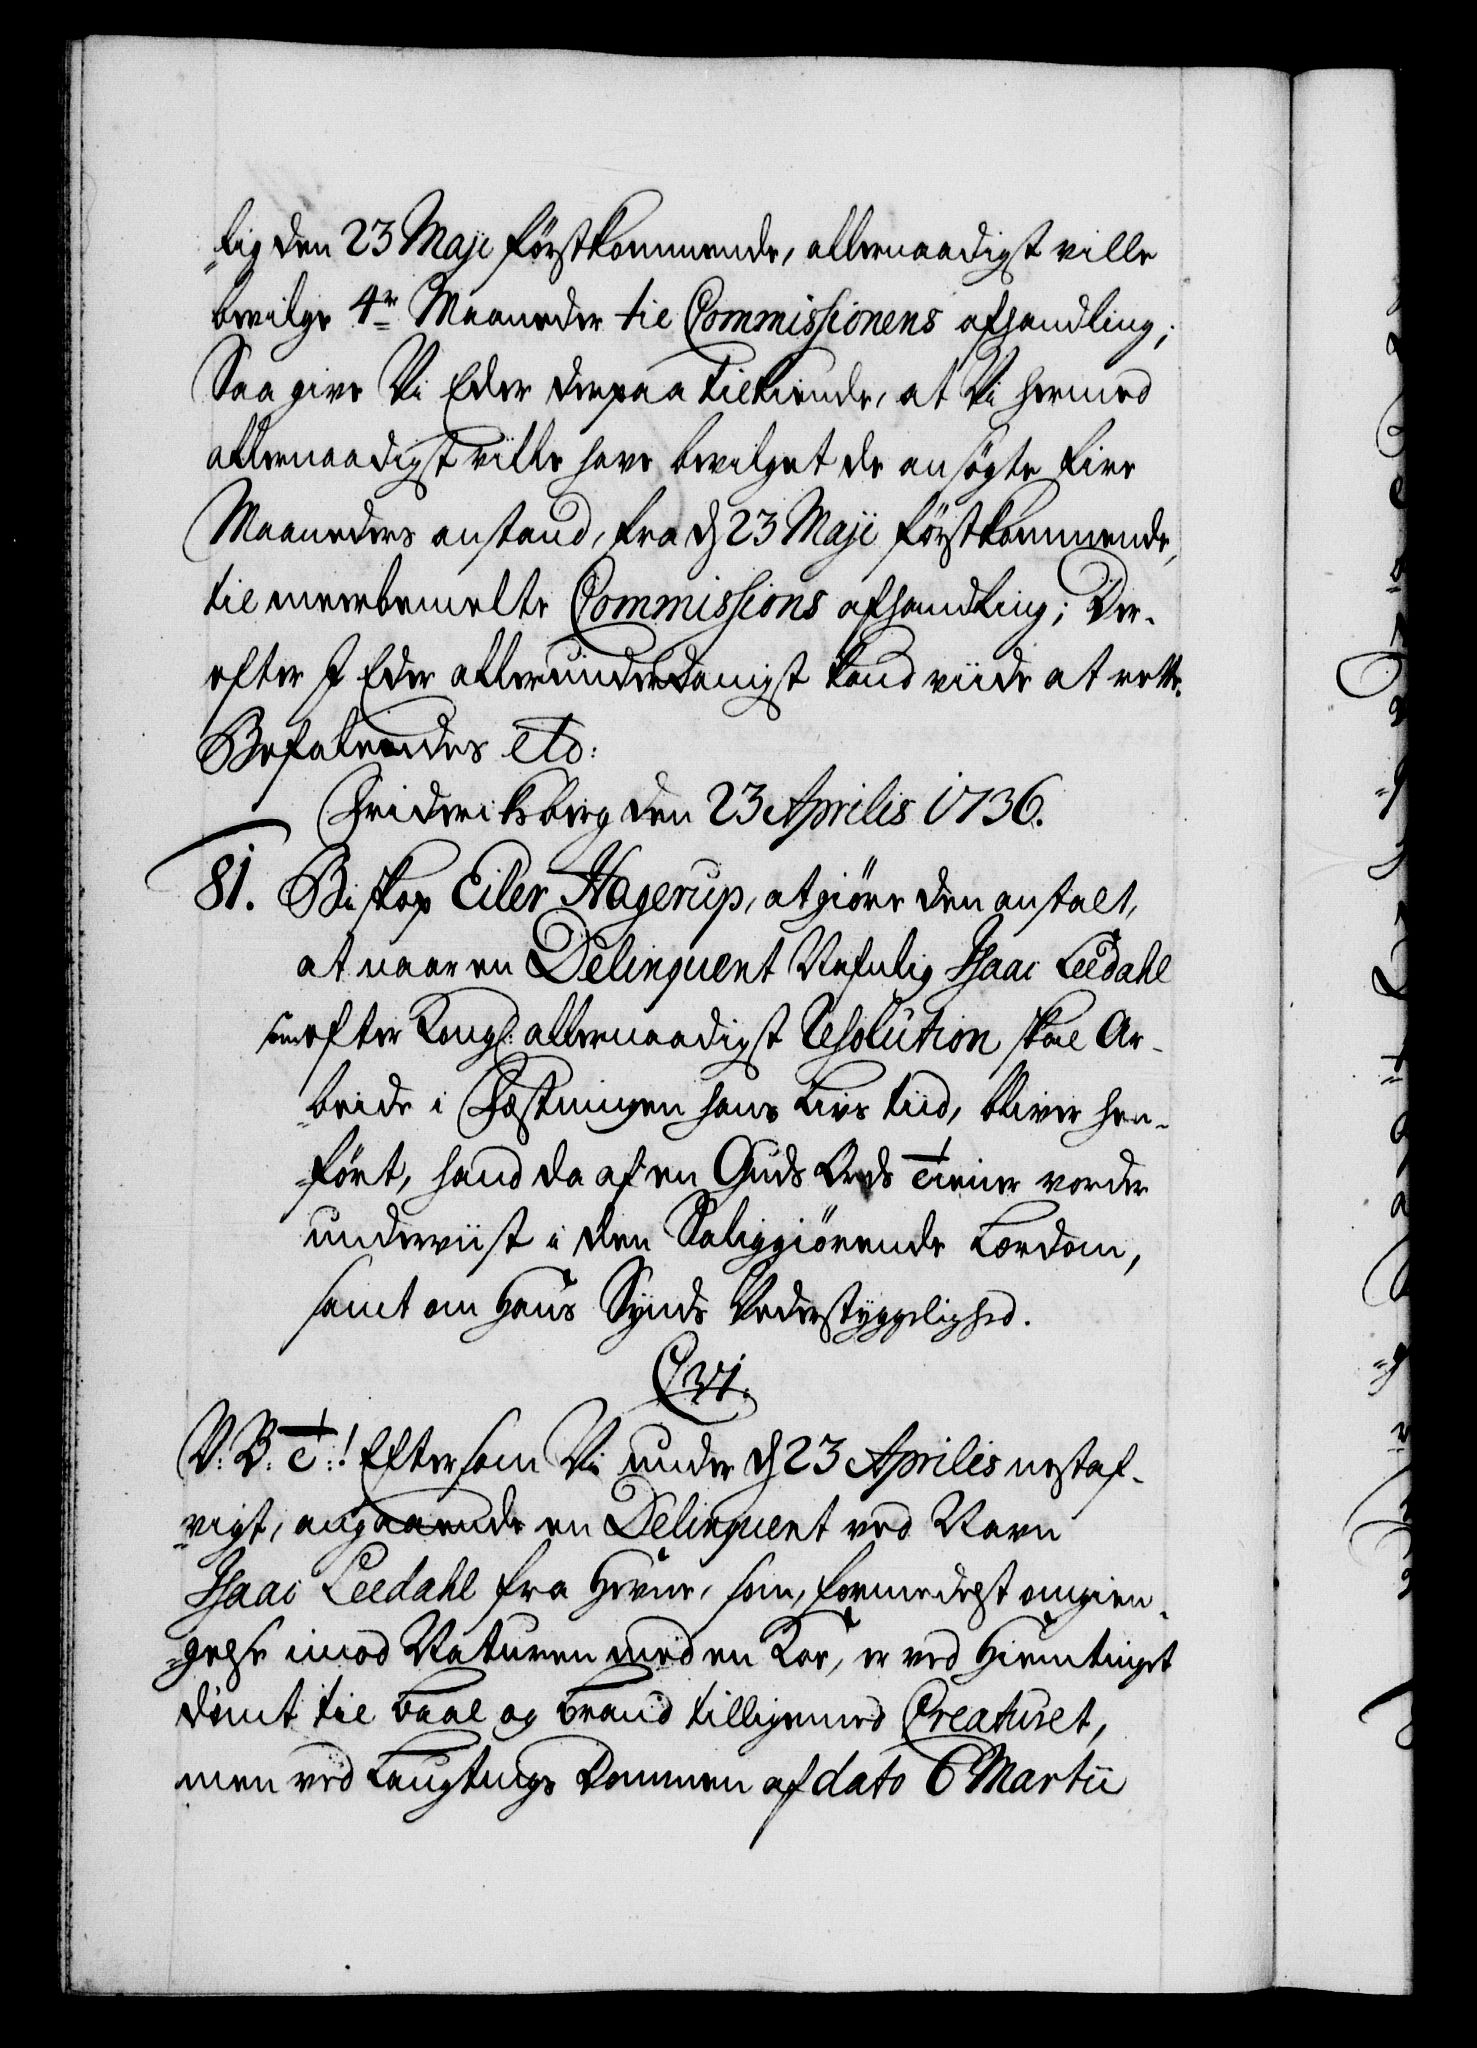 „lig den 23 Maji förstkommende, allernaadigst ville
bevilge 4re Maaneder til Commissionens afhandling;
Saa give Vi Eder derpaa tilkiende, at Vi hermed
allernaadigst ville have bevilget de ansögte fire
Maaneders anstand, fra d 23 Maji förstkommende,
til meerbemelte Commissions afhandling; Der-
efter I Eder allerunderdanigst kand viide at rette.
Befalendes etc:
Friderichsberg den 23 Aprilis 1736.
81. Biskop Eiler Hagerup, at giöre den anstalt,
at naar en Delinquent Nafnlig Isaac Leedahl
som efter Kongl: allernaadigst Resolution skal Ar-
„beide i Fæstningen hans Livs tiid, bliver hen-
„fört, hand da af en Guds Ords Tiener vorder
underviist i den Saliggiörende Lærdom,
samt om hans Synds Vederstyggelighed.
C VI.
V. B. T.! Eftersom Vi under d 23 Aprilis nestaf-
„vigt, angaaende en Delinquent ved Navn
Isaac Leedahl fra Hevne, som, formedelst omgien-
„gelse imod Naturen med en Koe, er ved Hiemtinget
dömt til baal og brand tilligemed Creaturet,
men ved Laugtings Dommen af dato 6 Martii